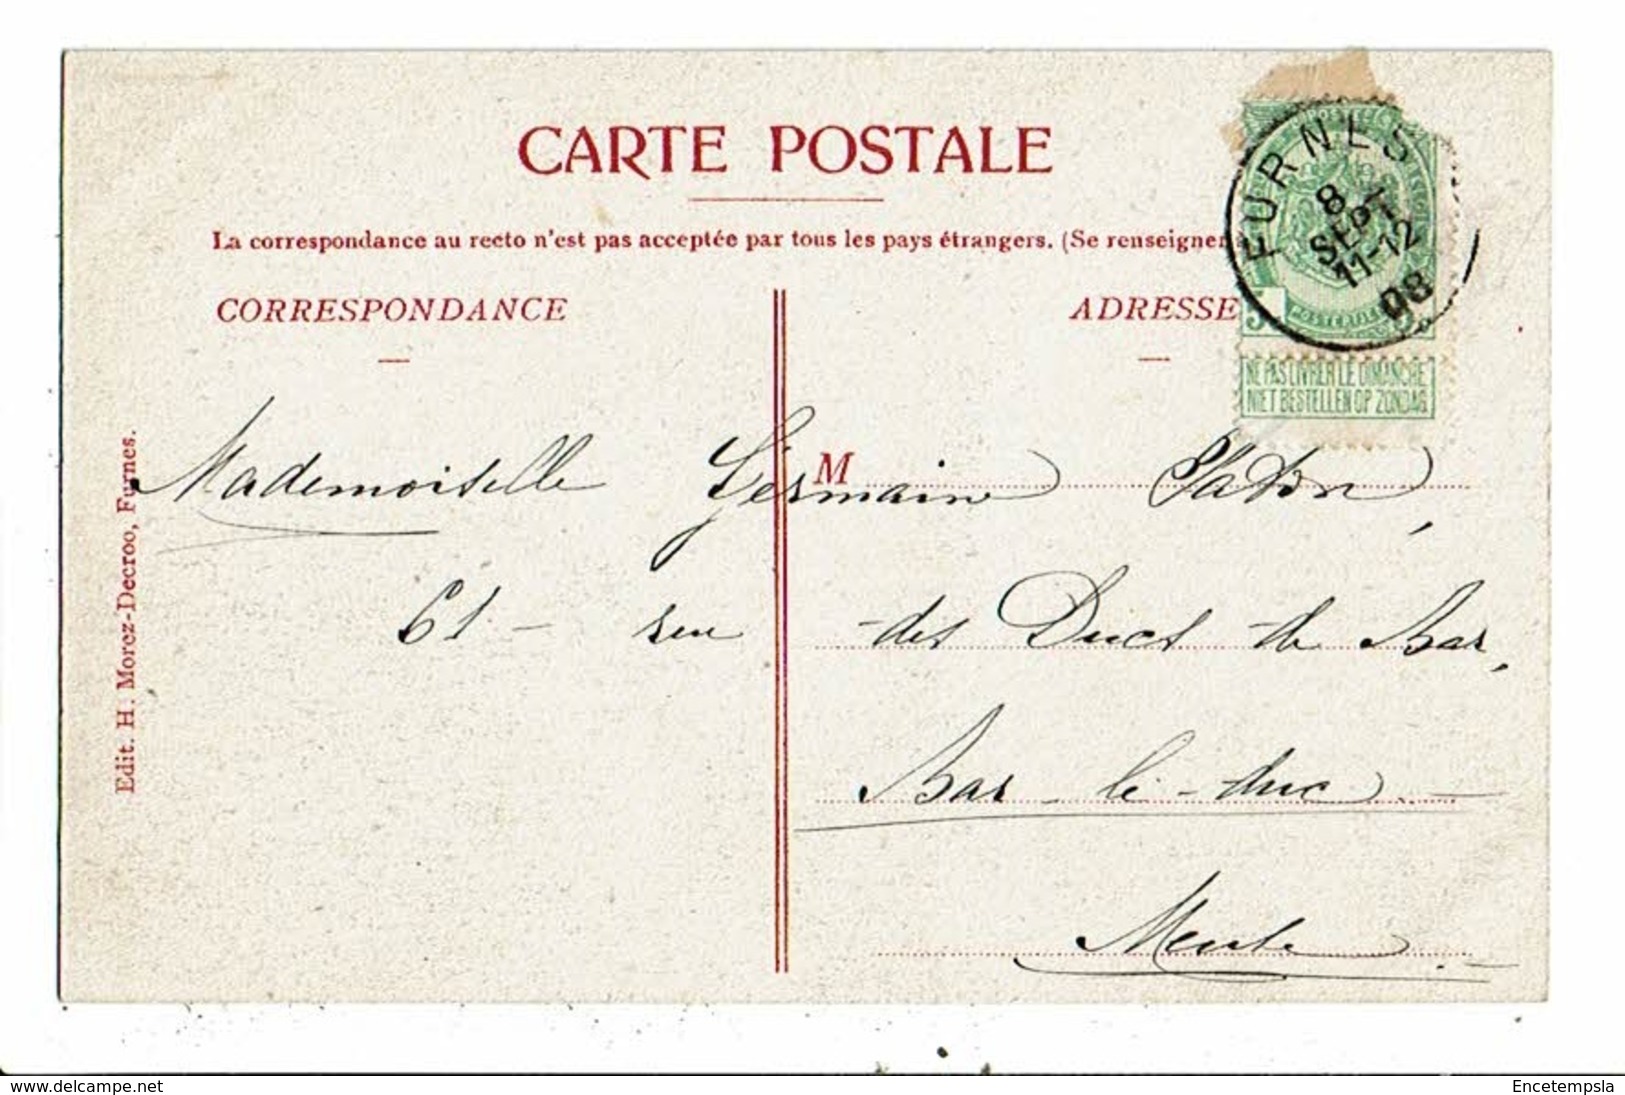 CARTE POSTALE
La correspondance au recto n'est pas acceptée par tous les pays étrangers. (Se renseigner
CORRESPONDANCE
ADRESSE
FURNES
8
SEPT
11-12
08
5
NE PAS LIVRER LE DIMANCHE
NIET BESTELLEN OP ZONDAG
M
Mademoiselle Germaine
61 - rue des Ducs de Bar,
Bar-le-duc -
Meuse
Edit. H. Morez-Decroo, Furnes.
www.delcampe.net
Encetempsla